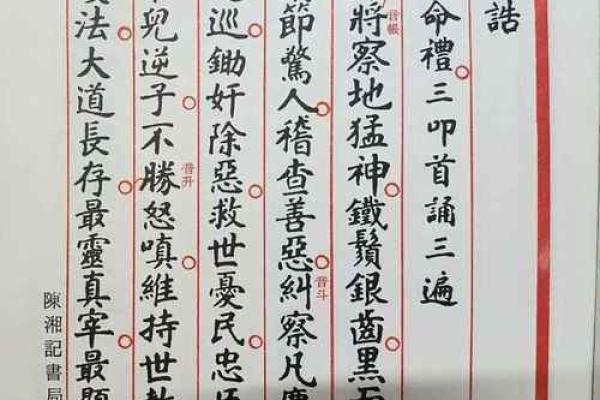 誥
命禮三叩首誦三遍
將察地猛神鐵鬚銀齒黑
音帳
節驚人稽查善惡糾察凡
音斗
巡鋤奸除惡救世憂民忠
兒逆子不勝怒嗔維持世
音升
法大道長存最靈真宰最
陳湘記書局